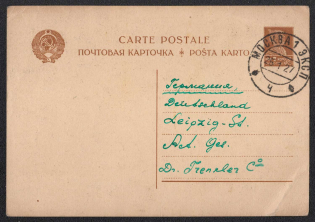 CARTE POSTALE
ПОЧТОВАЯ КАРТОЧКА ✦ POŜTA KARTO
МОСКВА 1 ЭКСП
27
Ч
Германия
Deutschland
Leipzig-
Act. Ges.
Dr. Trenkler Co